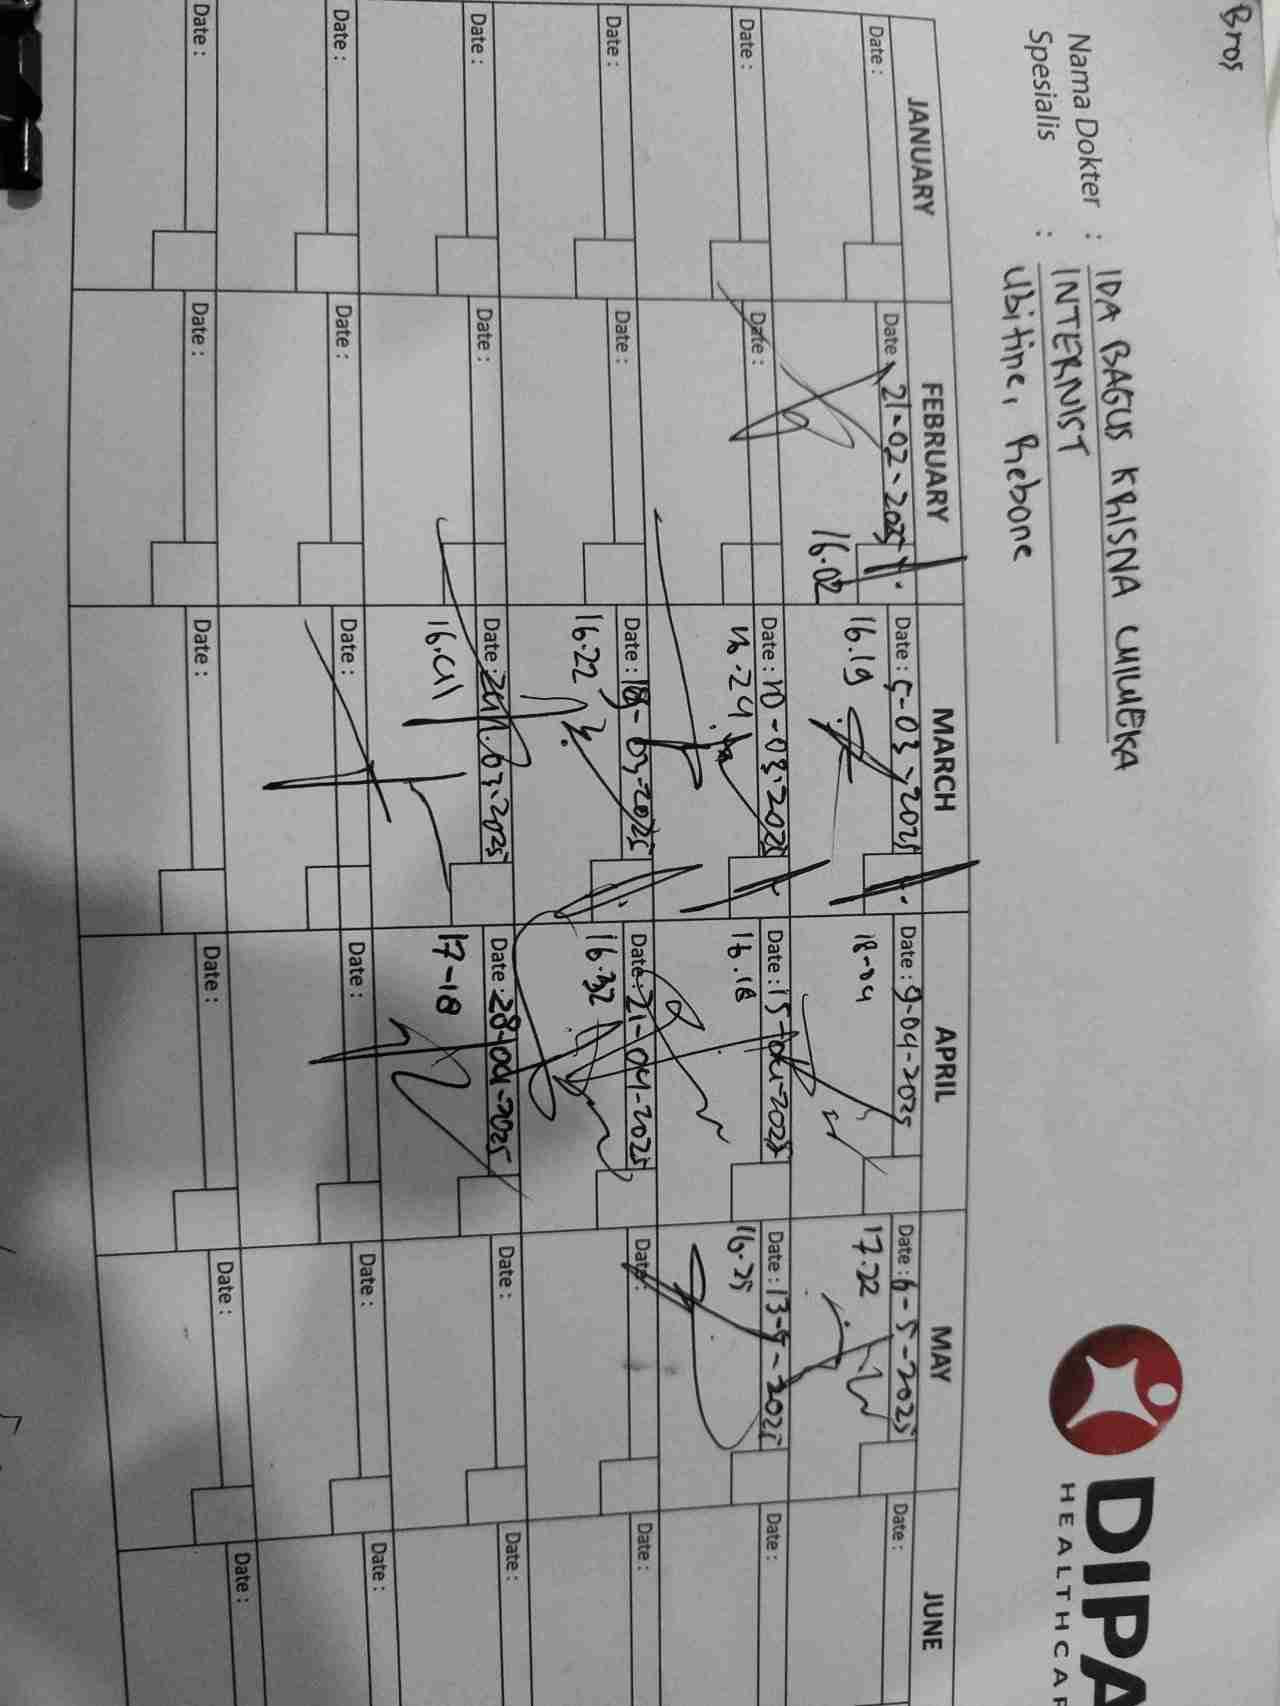 Bros
DIPA
HEALTHCAR
Nama Dokter : IDA BAGUS KRISNA
Spesialis : INTERNIST
Ubitine, Rebone
JANUARY FEBRUARY MARCH APRIL MAY JUNE
Date : Date : 21-02-2025 Date : 5-03-2025 Date : 9-04-2025 Date : 6-5-2025 Date :
16.02 16.19 18-04 17.22
Date : Date : Date : 10-03-2025 Date : 15-04-2025 Date : 13-5-2025 Date :
16.24 16.18 16.25
Date : Date : Date : 18-03-2025 Date : 21-04-2025 Date : Date :
16.22 16.32
Date : Date : Date : 24.03.2025 Date : 28-04-2025 Date : Date :
16.41 17-18
Date : Date : Date : Date : Date : Date :
Date : Date : Date : Date : Date : Date :